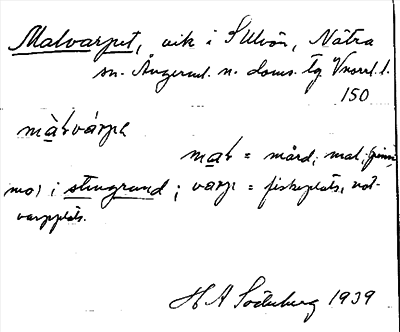 Malvarpet, vik i S Ulvön, Nätra
sn. Ångerml. n. doms. tg. Vnorrl. l.
150
màlvárpe
mal = mård; mal (
mo) i stengrund; varp = fiskeplats, not-
varpplats.
H A Söderberg 1939